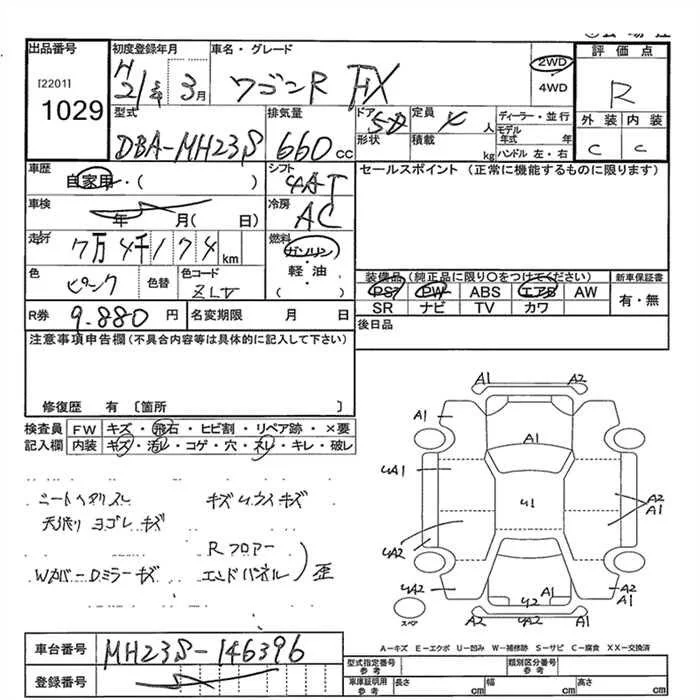 出品番号 初度登録年月 車名・グレード 評価点
[2201] H21年 3月 ワゴンR FX 2WD 4WD R
1029
型式 排気量 ドア 定員 ディーラー・並行
DBA-MH23S 660cc 5D 4人 モデル年式 年 外装 内装
形状 積載 kg ハンドル 左・右 C C
車歴 シフト セールスポイント (正常に機能するものに限ります)
自家用・( ) 4AT
車検 冷房
年 月( 日) AC
走行 燃料
7万4千174km ガソリン
軽・油
色 色替 色コード 装備品(純正品に限り〇をつけてください) 新車保証書
ピンク ZLV PS PW ABS エアB AW 有・無
( ) SR ナビ TV カワ
R券 9.880円 名変期限 月 日 後日品
注意事項申告欄(不具合内容等は具体的に記入して下さい)
修復歴 有 〔箇所 〕
検査員 FW キズ・飛石・ヒビ割・リペア跡・×要
記入欄 内装 キズ・汚レ・コゲ・穴・スレ・キレ・破レ
シートヘタリスレ キズ
天張り ヨゴレ キズ
Rフロアー
Wカバー Dミラーキズ エンドパネル 歪
A1 A2
A1 A1
4A1 41 A2
A1
4A2
4A2 42 A1 A2 A1
スペア 4A2 4A2
A-キズ E-エクボ U-凹み W-補修跡 S-サビ C-腐食 XX-交換済
車台番号 MH23S-146396 型式指定番号 参考 類別区分番号 参考
登録番号 車庫証明用 参考 長さ cm 幅 cm 高さ cm